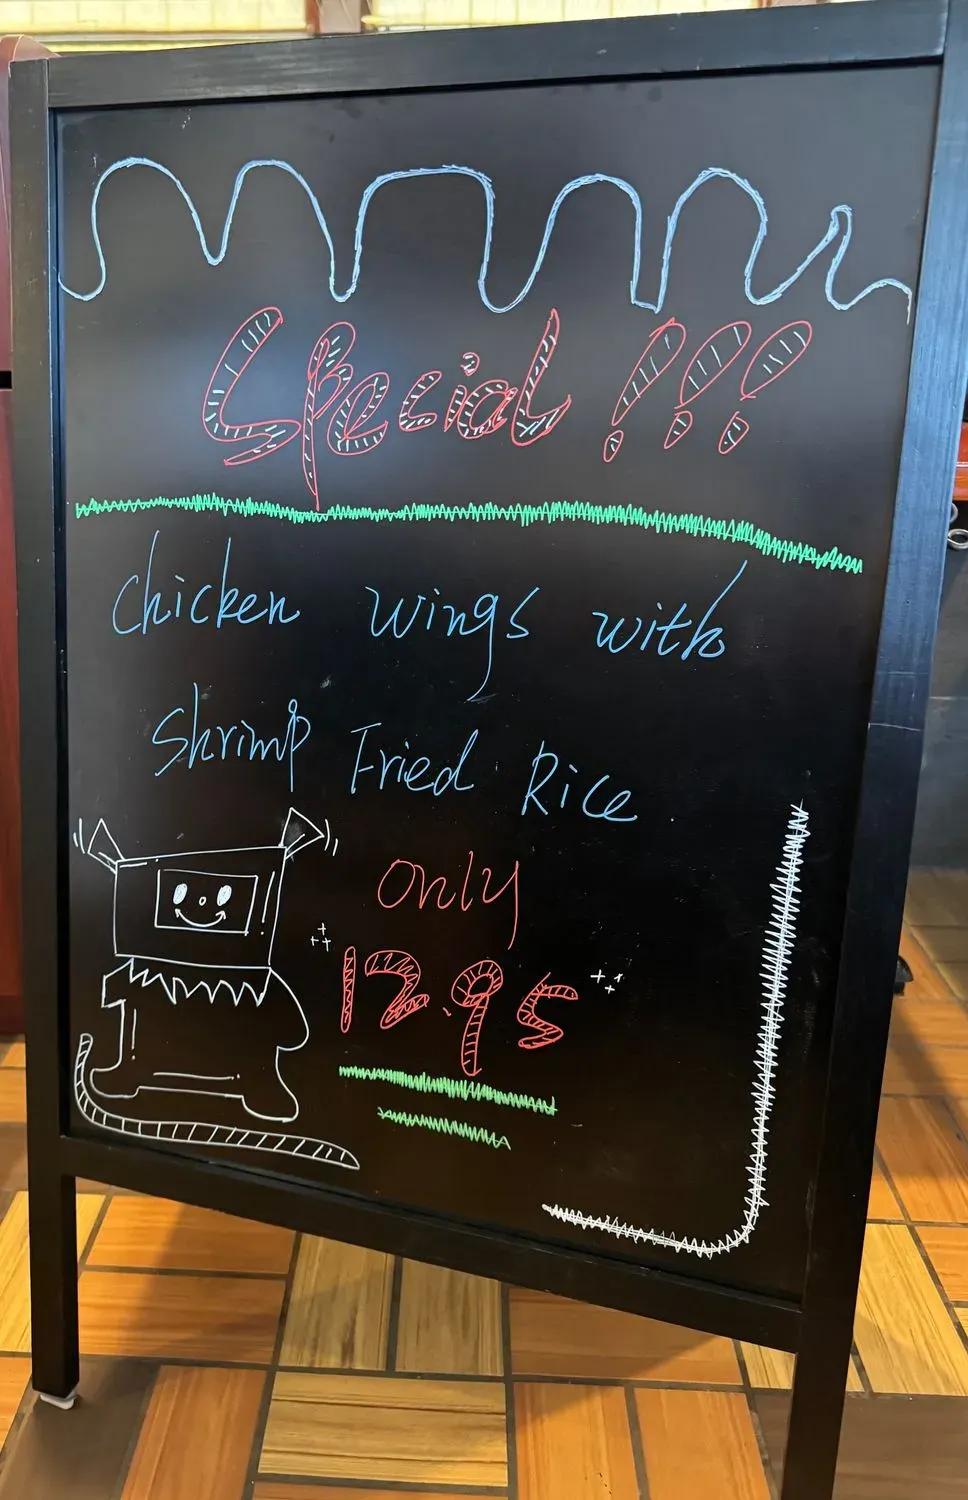 Special!!!
Chicken wings with
Shrimp Fried Rice
only
12.95